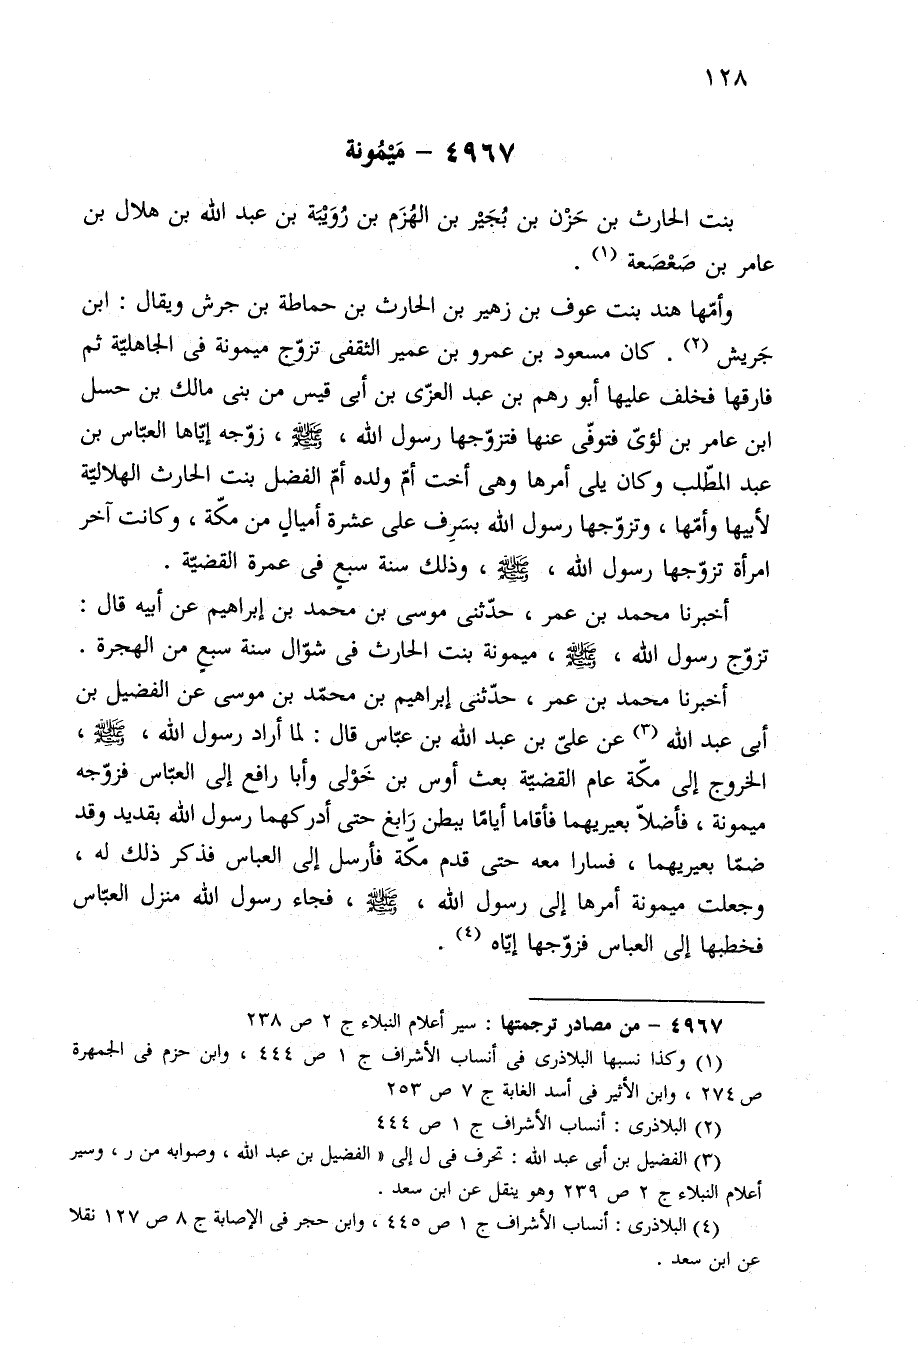 ١٢٨
٤٩٦٧ - مَيْمُونة
بنت الحارث بن حَزْن بن بُجَيْر بن الهُزَم بن رُوَيْبَة بن عبد الله بن هلال بن
عامر بن صَعْصَعة (١) .
وأمّها هند بنت عوف بن زهير بن الحارث بن حماطة بن جرش ويقال : ابن
جَريش (٢) . كان مسعود بن عمرو بن عمير الثقفى تزوّج ميمونة فى الجاهليّة ثم
فارقها فخلف عليها أبو رهم بن عبد العزّى بن أبى قيس من بنى مالك بن حسل
ابن عامر بن لؤىّ فتوفّى عنها فتزوّجها رسول الله ، ﷺ ، زوّجه إيّاها العبّاس بن
عبد المطّلب وكان يلى أمرها وهى أخت أمّ ولده أمّ الفضل بنت الحارث الهلاليّة
لأبيها وأمّها ، وتزوّجها رسول الله بسَرِف على عشرة أميالٍ من مكّة ، وكانت آخر
امرأة تزوّجها رسول الله ، ﷺ ، وذلك سنة سبعٍ فى عمرة القضيّة .
أخبرنا محمد بن عمر ، حدّثنى موسى بن محمد بن إبراهيم عن أبيه قال :
تزوّج رسول الله ، ﷺ ، ميمونة بنت الحارث فى شوّال سنة سبعٍ من الهجرة .
أخبرنا محمد بن عمر ، حدّثنى إبراهيم بن محمّد بن موسى عن الفضيل بن
أبى عبد الله (٣) عن علىّ بن عبد الله بن عبّاس قال : لما أراد رسول الله ، ﷺ ،
الخروج إلى مكّة عام القضيّة بعث أوس بن خَوْلى وأبا رافع إلى العبّاس فزوّجه
ميمونة ، فأضلاّ بعيريهما فأقاما أيامًا ببطن رَابغ حتى أدركهما رسول الله بقديد وقد
ضمّا بعيريهما ، فسارا معه حتى قدم مكّة فأرسل إلى العباس فذكر ذلك له ،
وجعلت ميمونة أمرها إلى رسول الله ، ﷺ ، فجاء رسول الله منزل العبّاس
فخطبها إلى العباس فزوّجها إيّاه (٤) .
٤٩٦٧ - من مصادر ترجمتها : سير أعلام النبلاء ج ٢ ص ٢٣٨
(١) وكذا نسبها البلاذرى فى أنساب الأشراف ج ١ ص ٤٤٤ ، وابن حزم فى الجمهرة
ص ٢٧٤ ، وابن الأثير فى أسد الغابة ج ٧ ص ٢٥٣
(٢) البلاذرى : أنساب الأشراف ج ١ ص ٤٤٤
(٣) الفضيل بن أبى عبد الله : تحرف فى ل إلى « الفضيل بن عبد الله ، وصوابه من ر ، وسير
أعلام النبلاء ج ٢ ص ٢٣٩ وهو ينقل عن ابن سعد .
(٤) البلاذرى : أنساب الأشراف ج ١ ص ٤٤٥ ، وابن حجر فى الإصابة ج ٨ ص ١٢٧ نقلا
عن ابن سعد .